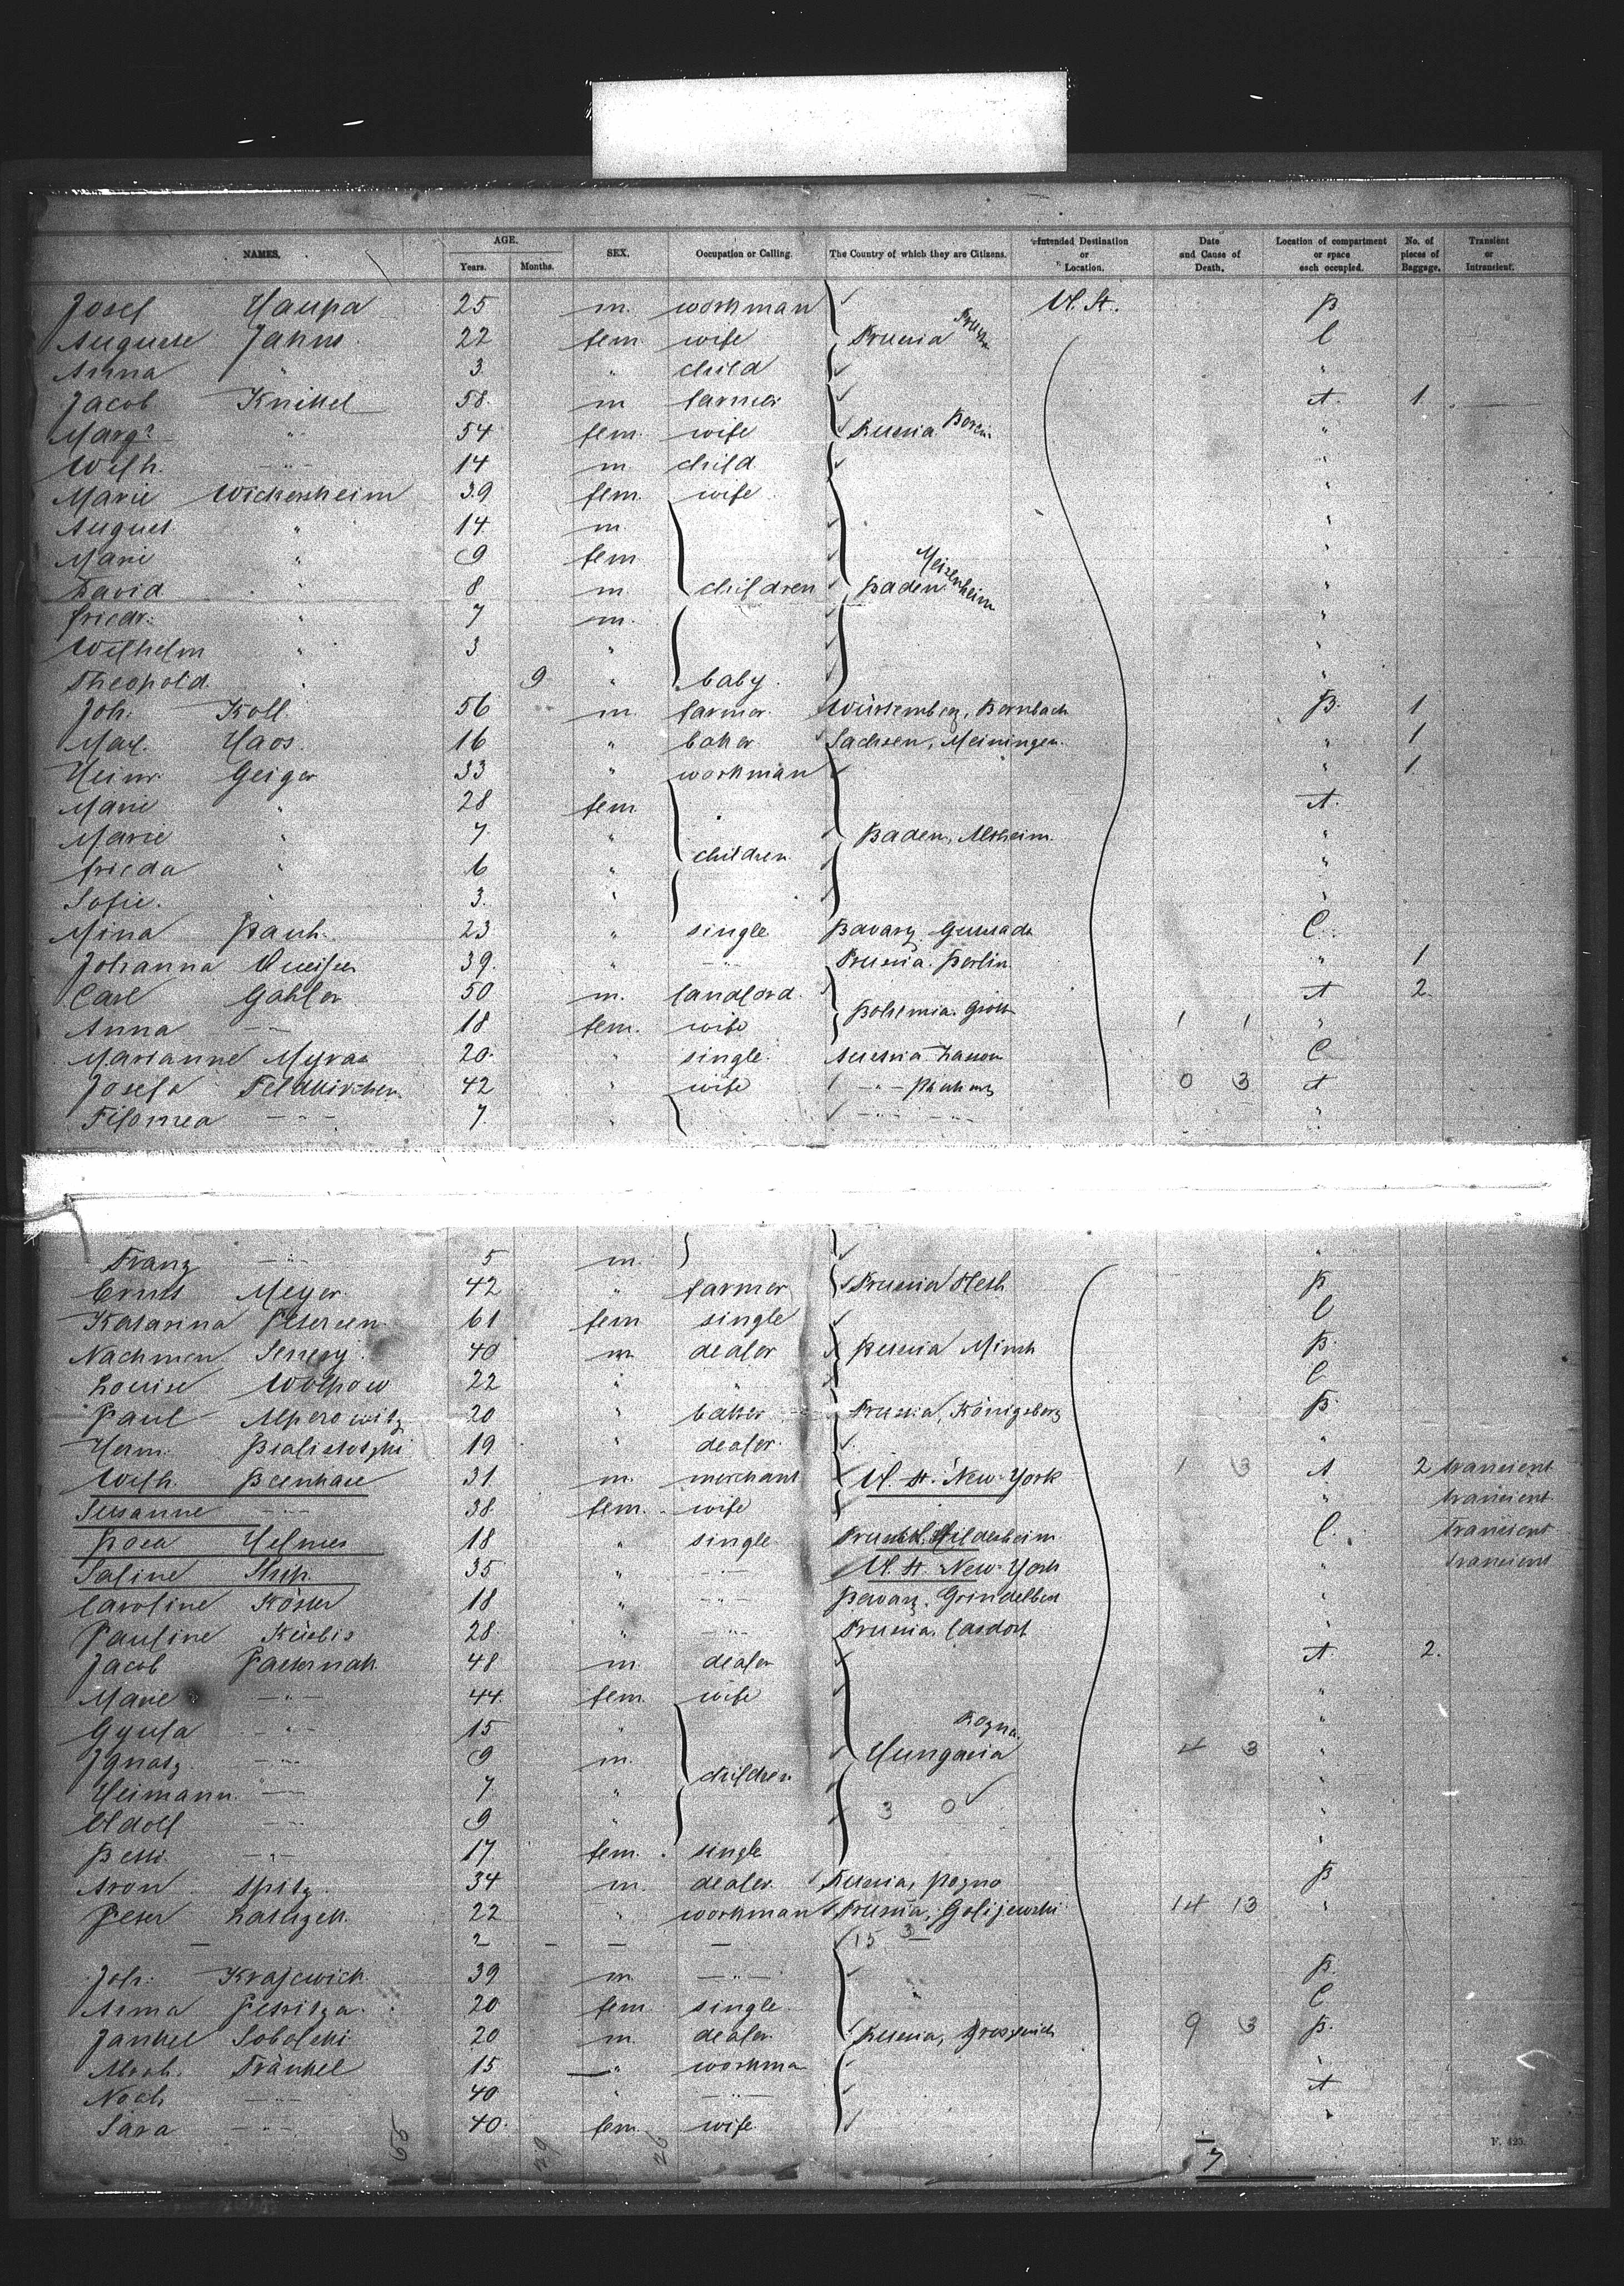 NAMES. AGE. Years. Months. SEX. Occupation or Calling. The Country of which they are Citizens. Intended Destination or Location. Date and Cause of Death. Location of compartment or space each occupied. No. of pieces of Baggage. Transient or Intransient.
Josef Haupa 25 m. workman U. St. B
Auguste Jahns 22 fem wife Prussia C
Anna " 3 " child "
Jacob Knittel 58 m farmer A. 1
Margr. " 54 fem. wife Russia "
Wilh. -"- 14 m. child "
Marie Wickersheim 39 fem. wife "
August " 14 m "
Marie " 9 fem "
David " 8 m. children Baden Meizenheim "
Friedr. " 7 m. "
Wilhelm " 3 " "
Theopold " 9 " baby "
Joh. Koll 56 m. farmer Würtemberg, Bernbach B. 1
Max. Haos 16 " baker Sachsen, Meiningen " 1
Heinr. Geiger 33 " workman " 1
Marie " 28 fem. A.
Marie " 7 " Baden, Altheim "
Frieda " 6 " children "
Sofie " 3 " "
Mina Bauh. 23 " single Bavary C.
Johanna 39 " -"- Prussia. Berlin " 1
Carl Gahler 50 m. landlord A 2
Anna -"- 18 fem. wife Bohemia. Grott 1 1 "
Marianne Myraa 20 " single Austria C
Josefa Feldkirchen 42 " wife -"- 0 3 A
Filomea -"- 7 " -"- -"- "
Franz -"- 5 m. "
Ernst Meyer 42 " farmer Prussia B
Katarina Petersen 61 fem single C
Nachmen 40 m dealer Russia Minsk B.
Louise Wolpow 22 " " C
Paul Alperowitz 20 " baker Prussia, Königsberg B.
Herm. Bialistotzki 19 " dealer "
Wilh. 31 m. merchant U. St. New-York 1 3 A 2 transient
Susanne -"- 38 fem. wife " transient
Rosa Helmes 18 " single Hildesheim C. Transient
Saline 35 " -"- U. St. New-York " transient
Caroline Köster 18 " -"- Bavary. "
Pauline Kürbis 28 " -"- Prussia. Casdorf "
Jacob Pasternak 48 m. dealer A 2.
Marie -"- 44 fem. wife "
Gyula -"- 15 " "
Ignatz -"- 9 m. Hungaria 4 3 "
Heimann -"- 7 " children "
Adolf -"- 9 " 3 0 "
Betti -"- 17 fem. single "
Aron Spitz 34 m. dealer Russia, B
Peter 22 " workman Prussia, 14 13 "
— 2 — — — 15 3
Joh. Krajewich 39 m. -"- B.
Anna 20 fem single C
Jankel Sobolski 20 m. dealer Russia, 9 3 B.
Abrah. Fränkel 15 " workma "
Noch -"- 40 " -"- A
Sara -"- 40 fem. wife "
65 29 26 7
F. 420.